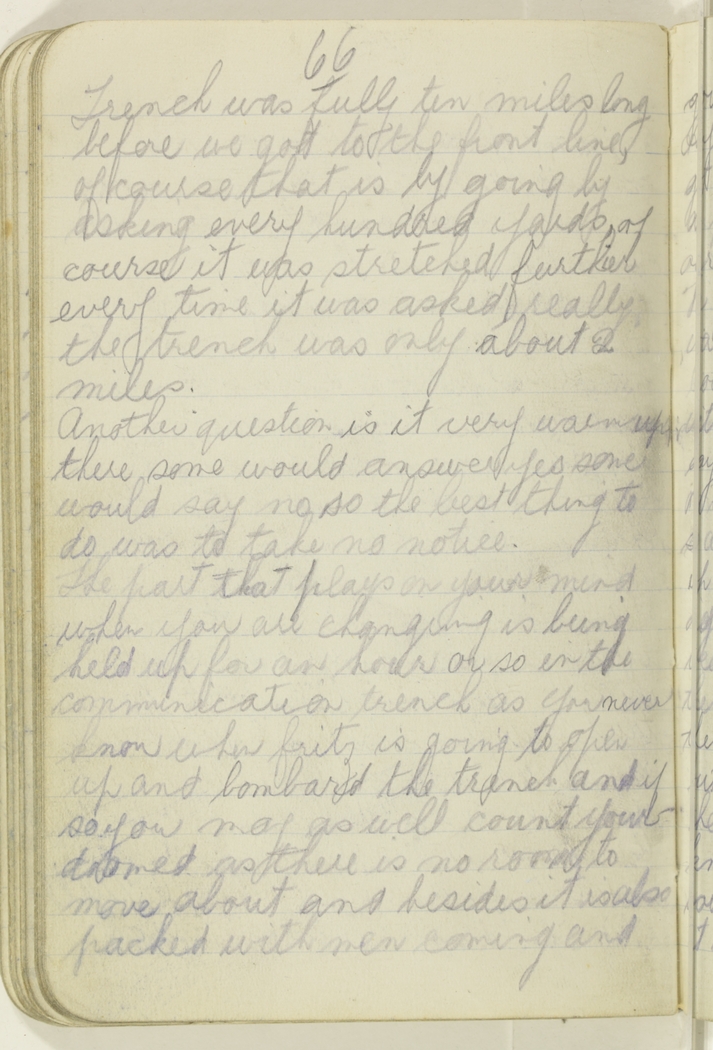 66
Trench was fully ten miles long
before we gott to the front line,
of course that is by going by
asking every hundred yards, of
course it was stretched further
every time it was asked really
the trench was only about 2
miles.
Another question is it very warm up
there some would answer yes some
would say no, so the best thing to
do was to take no notice.
The part that plays on your mind
when you are changing is being
held up for an hour or so in the
communication trench as you never
know when fritz is going to open
up and bombard the trench and if
so you may as well count your
doomed as there is no room to
move about and besides it is also
packed with men coming and